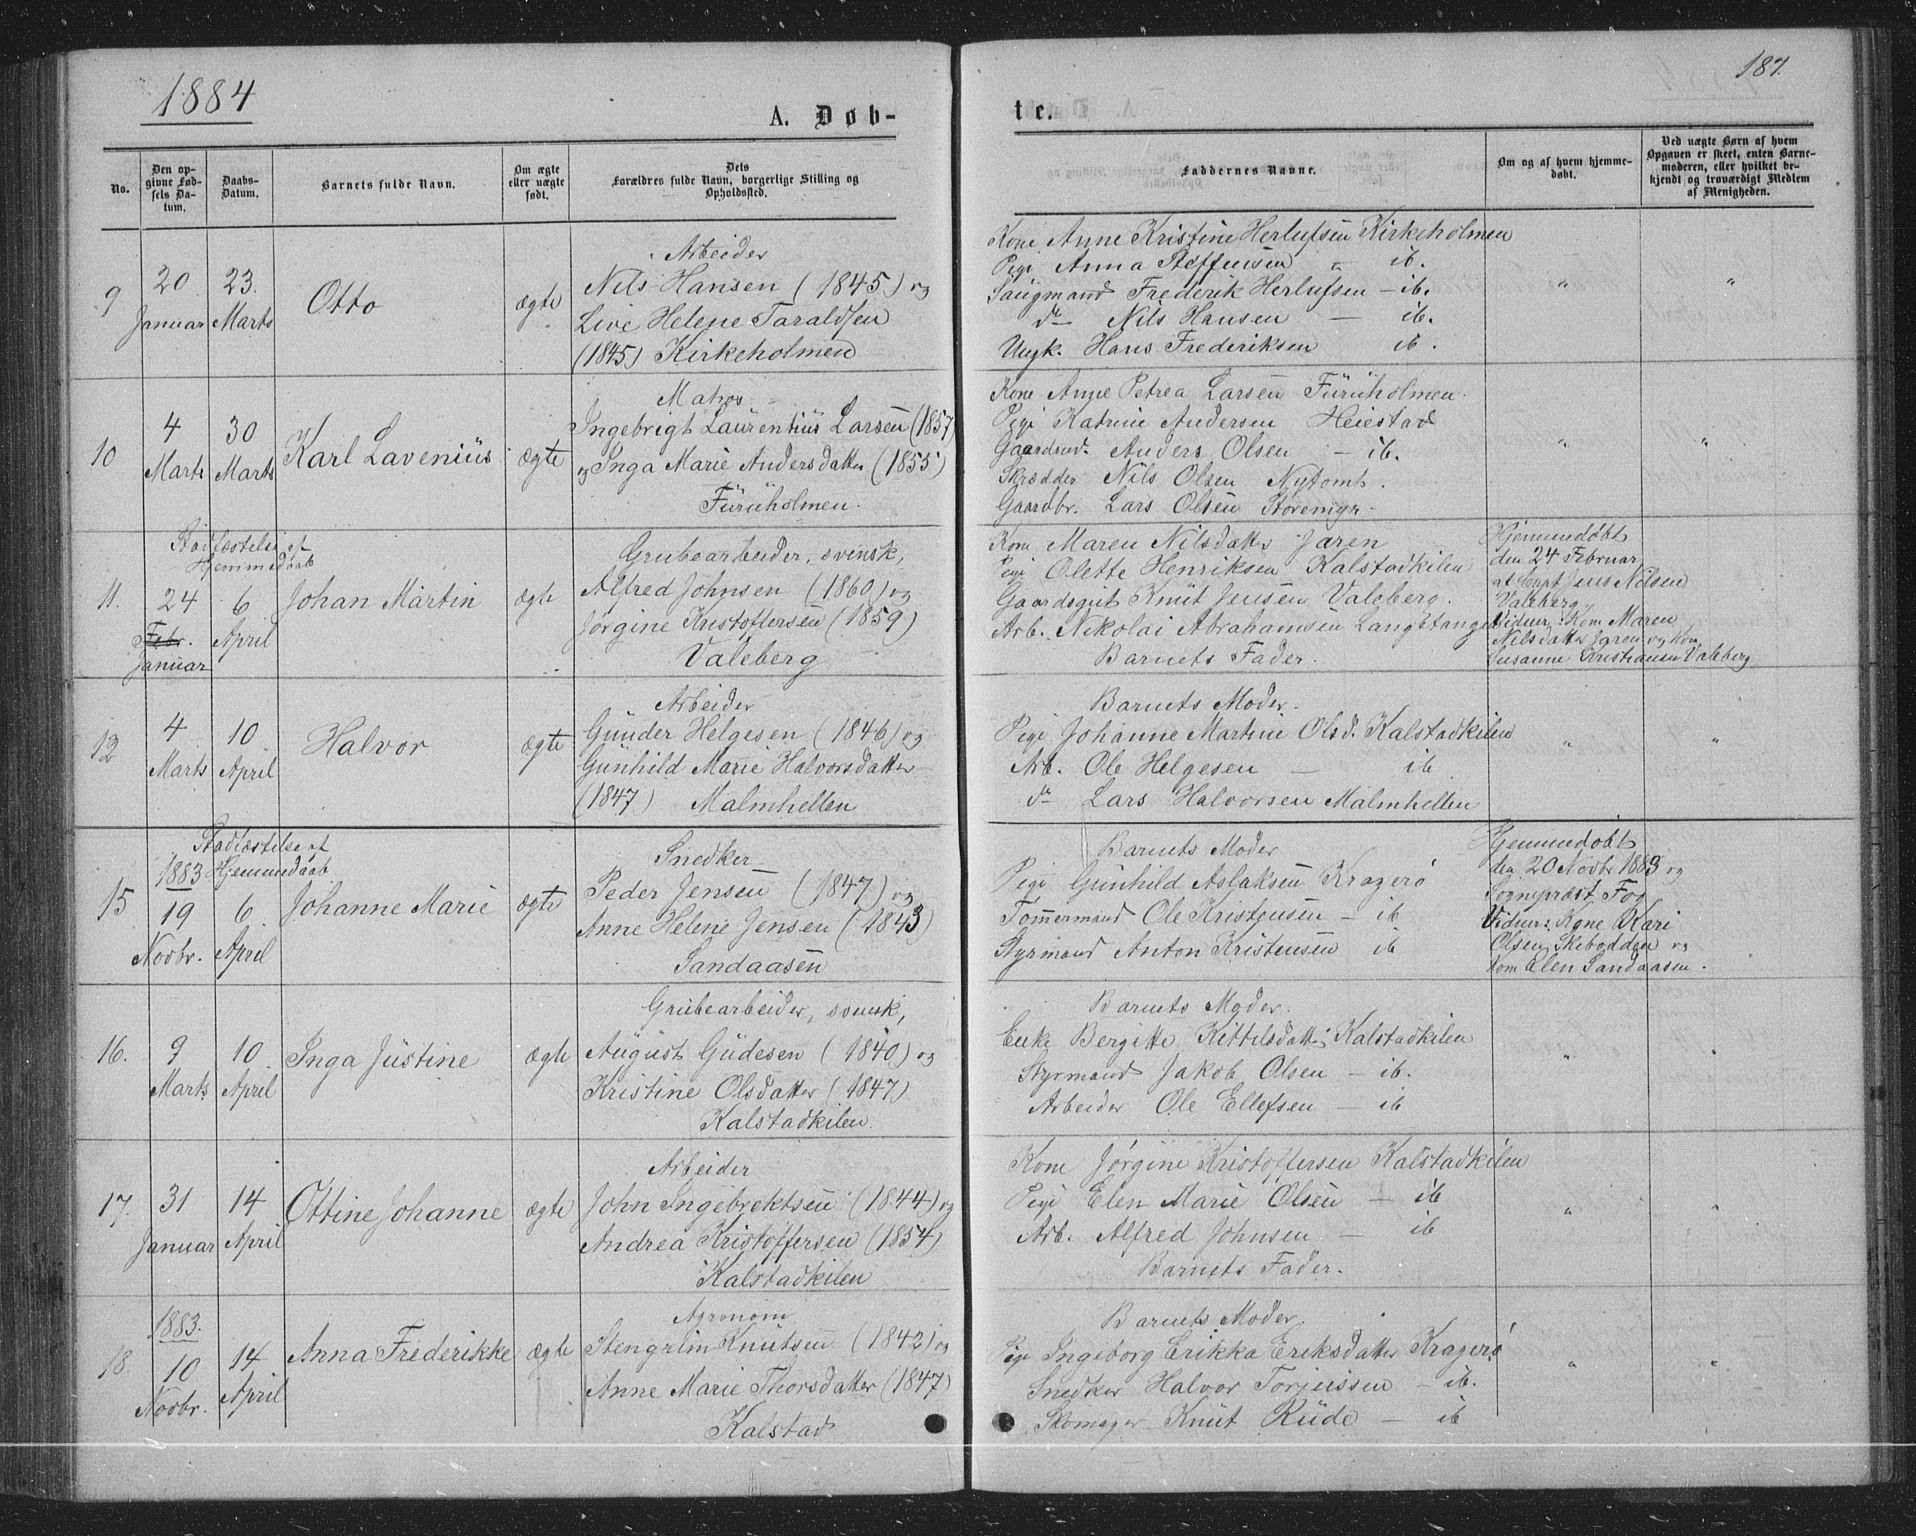 1884
187.
A. Døb-
te.
No.
Den op-
givne Fød-
sels Da-
tum.
Daabs-
Datum.
Barnets fulde Navn.
Om ægte
eller uægte
født.
Dets
Forældres fulde Navn, borgerlige Stilling og
Opholdssted.
Faddernes Navne.
Om og af hvem hjemme-
døbt.
Ved uægte Børn af hvem
Opgaven er skeet, enten Barne-
moderen, eller hvilket be-
kjendt og troværdigt Medlem
af Menigheden.
9
20
Januar
23.
Marts
Otto
ægte
Arbeider
Nils Hansen (1845) og
Live Helene Taraldsen
(1845) Kirkeholmen
Kone Anne Kristine Herlufsen Kirkeholmen
Pige Anna Steffensen " ib.
Saugmand Frederik Herlufsen - ib.
do Nils Hansen - ib.
Ungk. Hans Frederiksen ib.
"
"
10
4
Marts
30
Marts
Karl Lavenius
ægte
Matros
Ingebrigt Laurentius Larsen (1857)
og Inga Marie Andersdatter (1855)
Furuholmen.
Kone Anne Petrea Larsen Furuholmen.
Pige Katrine Andersen Heiestad
Gaardmd. Anders Olsen - ib.
Skrædder Nils Olsen Nytomt.
Gaardbr. Lars Olsen Storemyr.
"
"
Stadfæstelse af
Hjemmedaab
11.
24
Febr.
Januar
6
April
Johan Martin
ægte
Grubearbeider, svensk,
Alfred Johnsen (1860) og
Jørgine Kristoffersen (1859)
Valeberg
Kone Maren Nilsdatter Jaren
Pige Olette Henriksen Kalstadkilen
Gaardsgut Knut Jensen Valeberg.
Arb. Nikolai Abrahamsen Langetangen
Barnets Fader.
Hjemmedøbt
den 24 Februar
af Jens Nilsen
Valeberg
Vidner: Kone Maren
Nilsdatter Jaren og Kone
Susanne Kristiansen Valeberg
12
4
Marts
10
April
Halvor
ægte
Arbeider
Gunder Helgesen (1846) og
Gunhild Marie Halvorsdatter
(1847) Malmhellen
Barnets Moder.
Pige Johanne Martine Olsd. Kalstadkilen
Arb. Ole Helgesen - ib
do Lars Halvorsen Malmhellen
"
"
Stadfæstelse af
Hjemmedaab
15
1883
19
Novbr.
6
April
Johanne Marie
ægte
Snedker
Peder Jensen (1847) og
Anne Helene Jensen (1843)
Sandaasen
Barnets Moder
Pige Gunhild Aslaksen Kragerø
Tømmermand Ole Kristensen - ib
Styrmand Anton Kristensen ib
Hjemmedøbt
den 20 Novbr 1883 og
Sognepræst Fog
Vidner: Kone Kari
Olsen Skebodden og
Kone Elen Sandaasen.
16.
9
Marts
10
April
Inga Justine
ægte
Grubearbeider, svensk,
August Gudesen (1840) og
Kristine Olsdatter (1847)
Kalstadkilen
Barnets Moder.
Enke Bergitte Kittelsdatter Kalstadkilen
Styrmand Jakob Olsen - ib.
Arbeider Ole Ellefsen - ib
"
"
17.
31
Januar
14
April
Ottine Johanne
ægte
Arbeider
John Ingebrektsen (1844) og
Andrea Kristoffersen (1854)
Kalstadkilen
Kone Jørgine Kristoffersen Kalstadkilen
Pige Elen Marie Olsen - ib
Arb. Alfred Johnsen - ib
Barnets Fader.
"
"
18.
1883.
10
Novbr.
14
April
Anna Frederikke
ægte
Agronom
Stengrim Knutsen (1842) og
Anne Marie Thorsdatter (1847)
Kalstad
Barnets Moder.
Pige Ingeborg Erikka Eriksdatter Kragerø
Snedker Halvor Torjussen - ib.
Skomager Knut Rude - ib
"
"